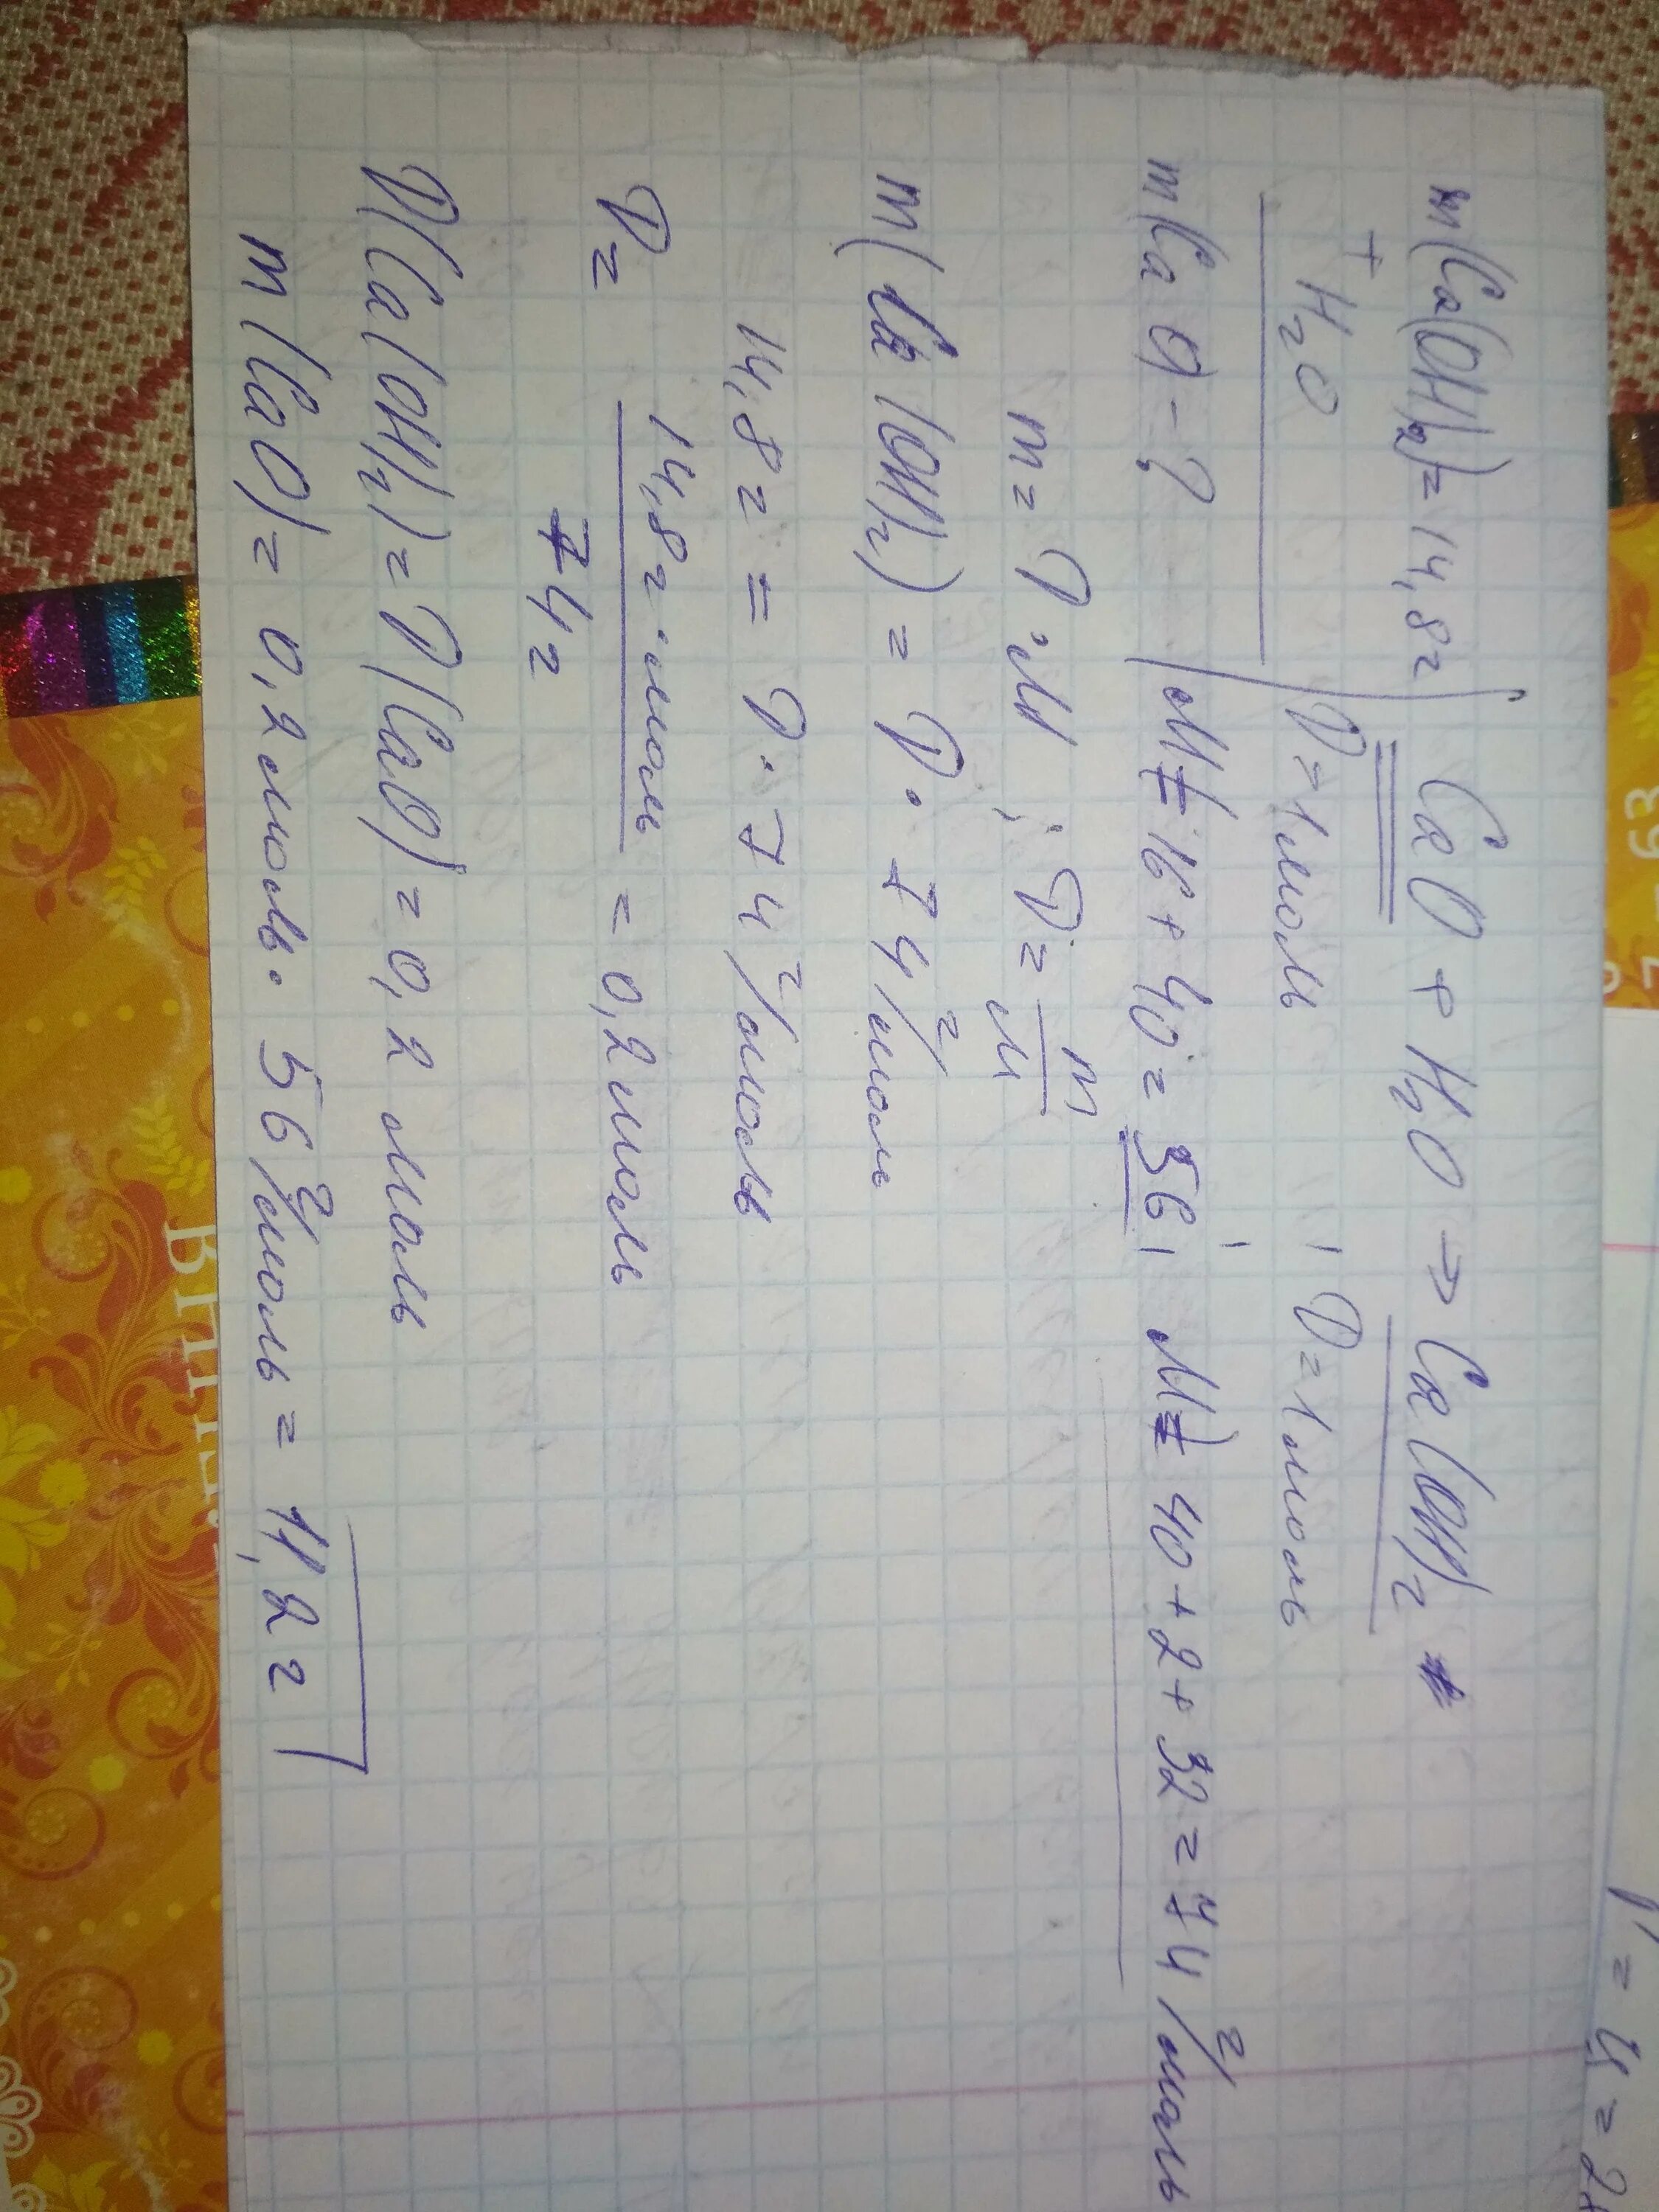 m(Ca(OH)₂)=14,8г
+ H₂O
m(CaO-?
CaO + H₂O → Ca(OH)₂
ν=1моль ; ν=1моль
M=16+40=56; M=40+2+32=74 г/моль
m=ν·M ; ν=m/M
m(Ca(OH)₂)=ν·74 г/моль
14,8г=ν·74 г/моль
ν=14,8г·моль/74г=0,2моль
ν(Ca(OH)₂)=ν(CaO)=0,2 моль
m(CaO)=0,2моль·56 г/моль=11,2г